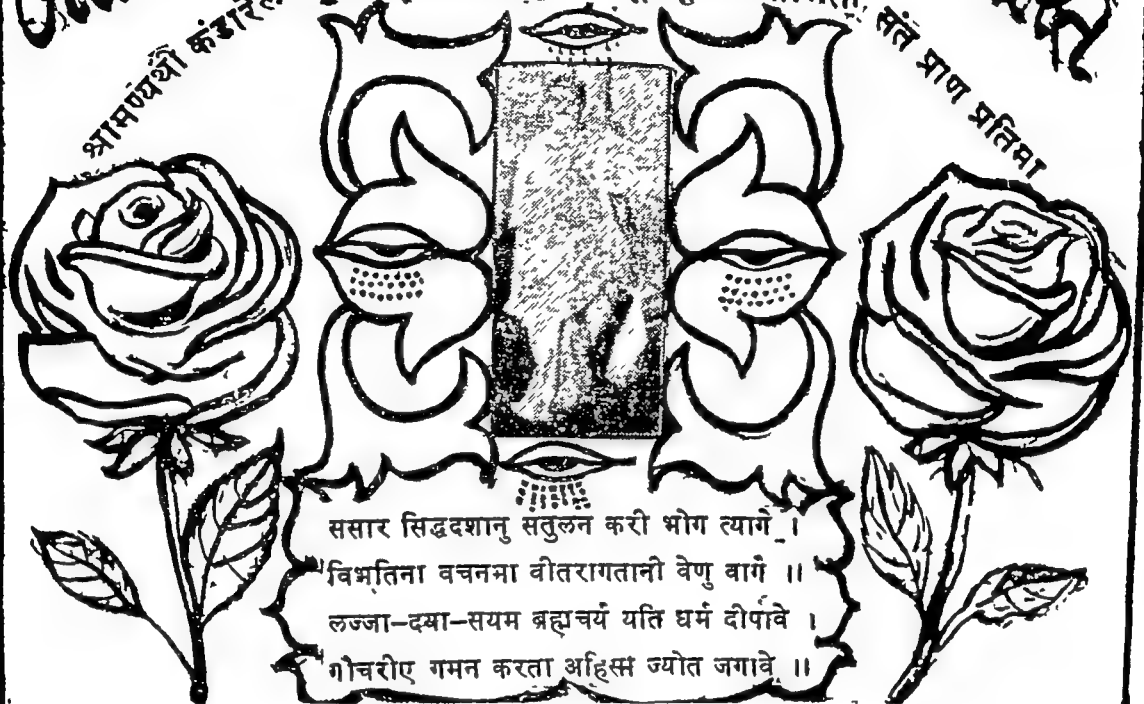 श्रामण्यर्थी कंडारेल
संत प्राण प्रतिमा
ससार सिद्धदशानु सतुलन करी भोग त्यागे ।
विभतिना वचनमा वीतरागतानी वेणु वागे ॥
लज्जा-दया-सयम ब्रह्मचर्य यति धर्म दीपावे ।
गौचरीए गमन करता अहिस्म ज्योत जगावे ॥